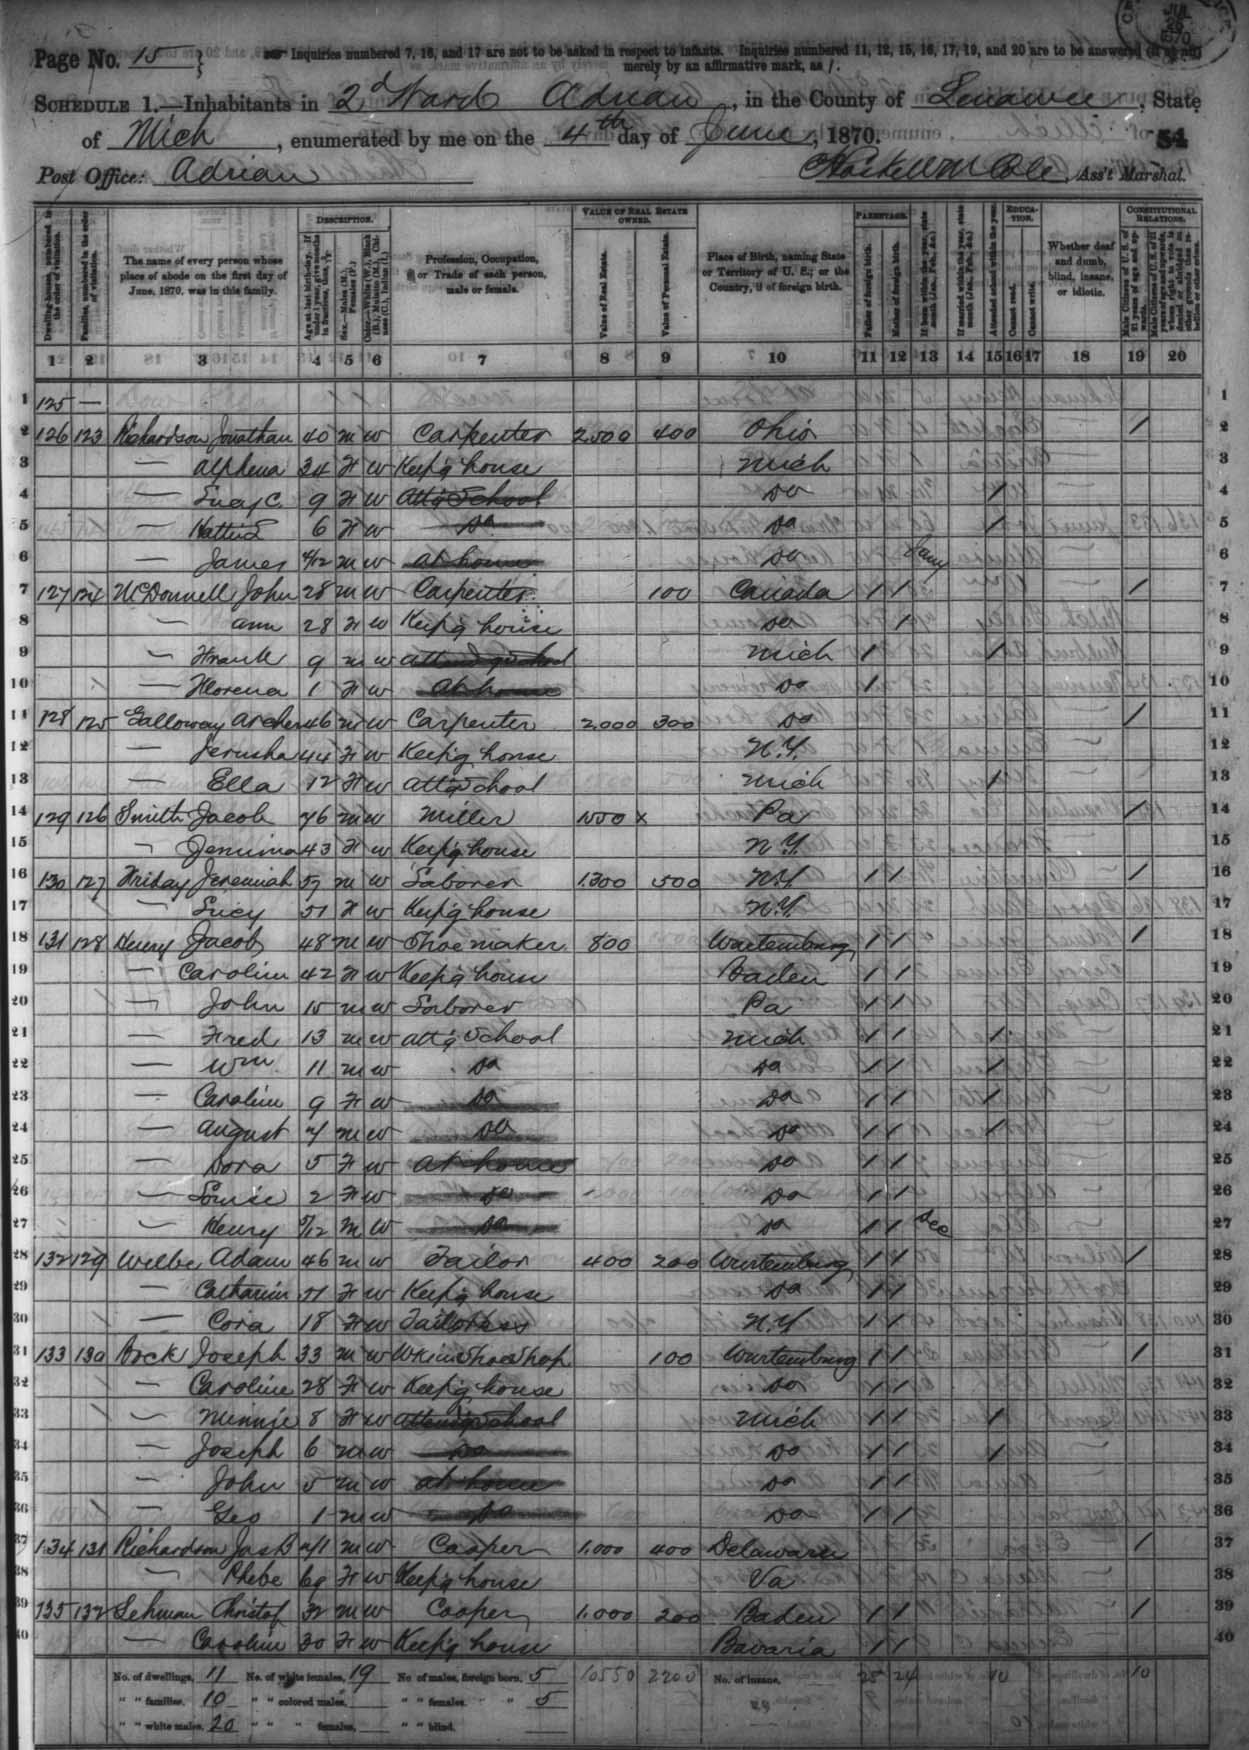 Page No. 15
Inquiries numbered 7, 16, and 17 are not to be asked in respect to infants. Inquiries numbered 11, 12, 15, 16, 17, 19, and 20 are to be answered (if at all)
merely by an affirmative mark, as /.
JUL 26 1870
SCHEDULE 1.—Inhabitants in 2d Ward Adrian, in the County of Lenawee, State
of Mich, enumerated by me on the 4th day of June, 1870.
54
Post Office: Adrian
Cole, Ass't Marshal.
DESCRIPTION. VALUE OF REAL ESTATE OWNED. PARENTAGE. EDUCATION. CONSTITUTIONAL RELATIONS.
Dwelling-houses, numbered in the order of visitation.
Families, numbered in the order of visitation.
The name of every person whose place of abode on the first day of June, 1870, was in this family.
Age at last birth-day. If under 1 year, give months in fractions, thus, 3/12
Sex.—Males (M.), Females (F.)
Color.—White (W.), Black (B.), Mulatto (M.), Chinese (C.), Indian (I.)
Profession, Occupation, or Trade of each person, male or female.
Value of Real Estate.
Value of Personal Estate.
Place of Birth, naming State or Territory of U. S.; or the Country, if of foreign birth.
Father of foreign birth.
Mother of foreign birth.
If born within the year, state month (Jan., Feb., &c.)
If married within the year, state month (Jan., Feb., &c.)
Attended school within the year.
Cannot read.
Cannot write.
Whether deaf and dumb, blind, insane, or idiotic.
Male Citizens of U. S. of 21 years of age and upwards.
1 2 3 4 5 6 7 8 9 10 11 12 13 14 15 16 17 18 19 20
1 125 — 1
2 126 123 Richardson Jonathan 40 M W Carpenter 2500 400 Ohio / 2
3 — Alphena 34 F W Keep'g house Mich 3
4 — Lucy C. 9 F W Att'g School Do / 4
5 — Hattie 6 F W Do Do / 5
6 — James 4/12 M W At home Do Jany 6
7 127 124 McDonnell John 28 M W Carpenter 100 Canada / / / 7
8 — Ann 28 F W Keep'g house Do / 8
9 — Frank 9 M W Attend'g School Mich / / 9
10 — Florena 1 F W At home Do / 10
11 128 125 Galloway Archer 46 M W Carpenter 2,000 300 Do / 11
12 — Jerusha 44 F W Keep'g house N.Y. 12
13 — Ella 12 F W Att'g School Mich / 13
14 129 126 Smith Jacob 46 M W Miller 1550 x Pa / 14
15 — Jemima 43 F W Keep'g house N.Y. 15
16 130 127 Friday Jeremiah 57 M W Laborer 1,300 500 N.Y / 16
17 — Lucy 51 F W Keep'g house N.Y. 17
18 131 128 Henry Jacob 48 M W Shoemaker 800 Wurtemburg / / / 18
19 — Carolin 42 F W Keep'g house Baden / / 19
20 — John 15 M W Laborer Pa / / 20
21 — Fred 13 M W Att'g School Mich / / / 21
22 — Wm 11 M W Do Do / / / 22
23 — Carolin 9 F W Do Do / / / 23
24 — August 7 M W Do Do / / / 24
25 — Dora 5 F W At home Do / / 25
26 — Louise 2 F W Do Do / / 26
27 — Henry /12 M W Do Do / / Dec 27
28 132 129 Welbe Adam 46 M W Tailor 400 200 Wurtemburg / / / 28
29 — Catharin 51 F W Keep'g house Do / / 29
30 — Cora 18 F W Tailoress N.Y / / 30
31 133 130 Joseph 33 M W Wk in Shoe Shop 100 Wurtemburg / / / 31
32 — Caroline 28 F W Keep'g house Do / / 32
33 — Minnie 8 F W Attend'g School Mich / / / 33
34 — Joseph 6 M W Do Do / / / 34
35 — John 5 M W At home Do / / 35
36 — Geo 1 M W Do Do / / 36
37 134 131 Richardson Jas B 71 M W Cooper 1,000 400 Delaware / 37
38 — Phebe 69 F W Keep'g house Va 38
39 135 132 Lehman Christof 32 M W Cooper 1,000 200 Baden / / / 39
40 — Carolin 30 F W Keep'g house Bavaria / / 40
No. of dwellings, 11 No. of white females, 19 No. of males, foreign born, 5 10550 2200 No. of insane, 25 24 10 10
" " families, 10 " " colored males, " " females, " " 5
" " white males, 20 " " " females, " " blind,